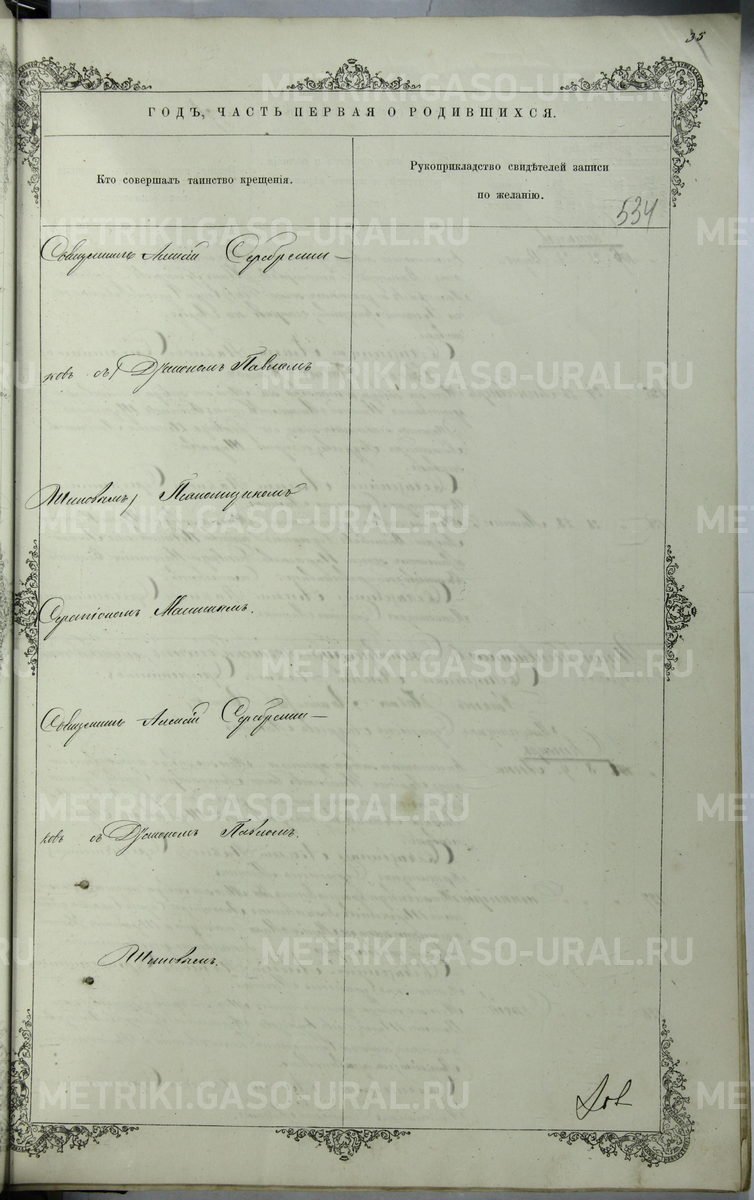 35
ГОДЪ, ЧАСТЬ ПЕРВАЯ О РОДИВШИХСЯ.
Кто совершалъ таинство крещенія.
Рукоприкладство свидѣтелей записи
по желанію.
534
Священникъ Алексій Серебрени-
ковъ съ Діакономъ Павломъ
Шиповымъ, Псаломщикомъ
Серапіономъ
Священникъ Алексій Серебрени-
ковъ съ Діакономъ Павломъ
Шиповымъ.
METRIKI.GASO-URAL.RU